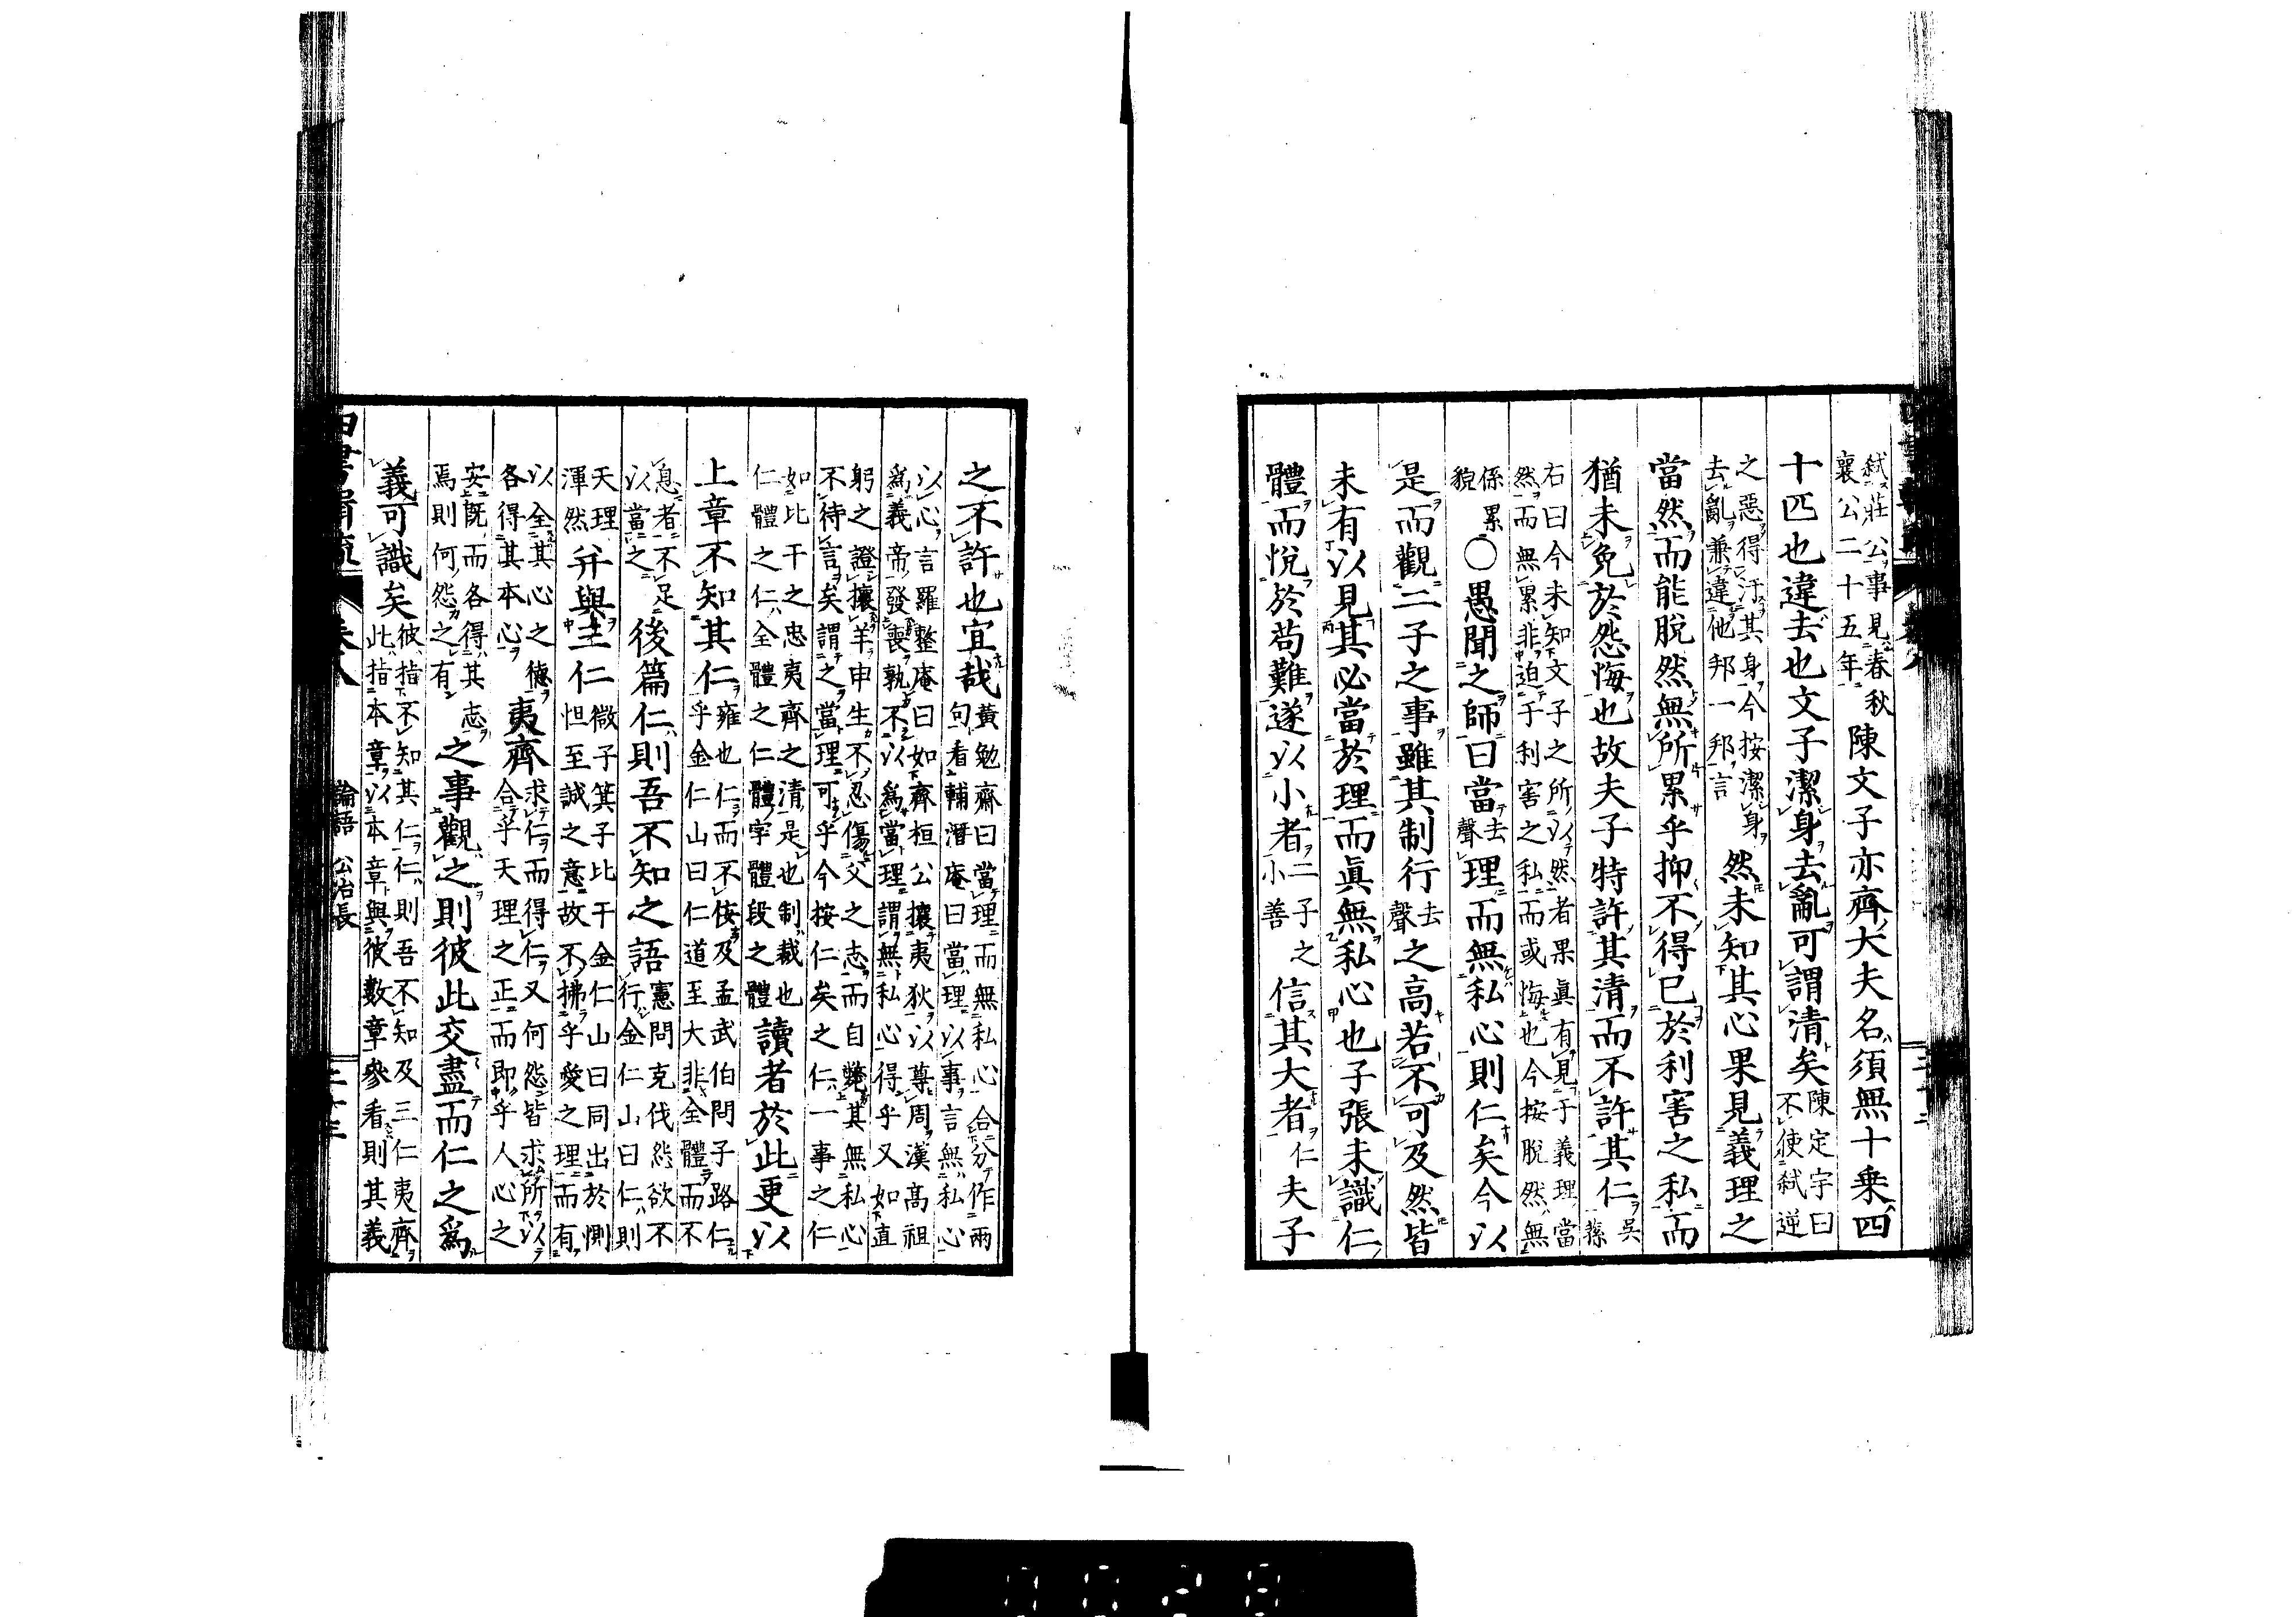 弑莊公事見春秋襄公二十五年陳文子亦齊大夫名須無十乗四
十匹也違去也文子潔身去亂可謂清矣陳定宇曰不使弑逆
之惡得汙其身今按潔身去亂兼違他邦一邦言然未知其心果見義理之
當然而能脱然無所累乎抑不得已於利害之私而
猶未免於怨悔也故夫子特許其清而不許其仁吳蓀
右曰今未知文子之所以然者果眞有見于義理當
然而無累非迫于利害之私而或悔也今按脱然無
係累貌○愚聞之師曰當去聲理而無私心則仁矣今以
是而觀二子之事雖其制行去聲之高若不可及然皆
未有以見其必當於理而眞無私心也子張未識仁
體而悦於苟難遂以小者二子之小善信其大者仁夫子
之不許也宜哉黄勉齋曰當理而無私心合分作兩句看輔潛庵曰當理以事言無私心
以心言羅整庵曰如齊桓公攘夷狄以尊周漢髙祖
爲義帝發喪孰不以爲當理謂無私心得乎又如直
躬之證攘羊申生不忍傷父之志而自斃其無私心
不待言矣謂之當理可乎今按仁矣之仁一事之仁
如比干之忠夷齊之清是也制裁也
仁體之仁全體之仁體字體段之體讀者於此更以
上章不知其仁雍也仁而不佞及孟武伯問子路仁乎金仁山曰仁道至大非全體而不
息者不足以當之後篇仁則吾不知之語憲問克伐怨欲不行金仁山曰仁則
天理渾然并與三仁微子箕子比干金仁山曰同出於惻怛至誠之意故不拂乎愛之理而有
以全其心之德夷齊求仁而得仁又何怨皆求所以
各得其本心合乎天理之正而即乎人心之
安既而各得其志焉則何怨之有之事觀之則彼此交盡而仁之爲
義可識矣彼指不知其仁仁則吾不知及三仁夷齊此指本章以本章與彼數章參看則其義
四書
卷八
論語 公冶長
三十三